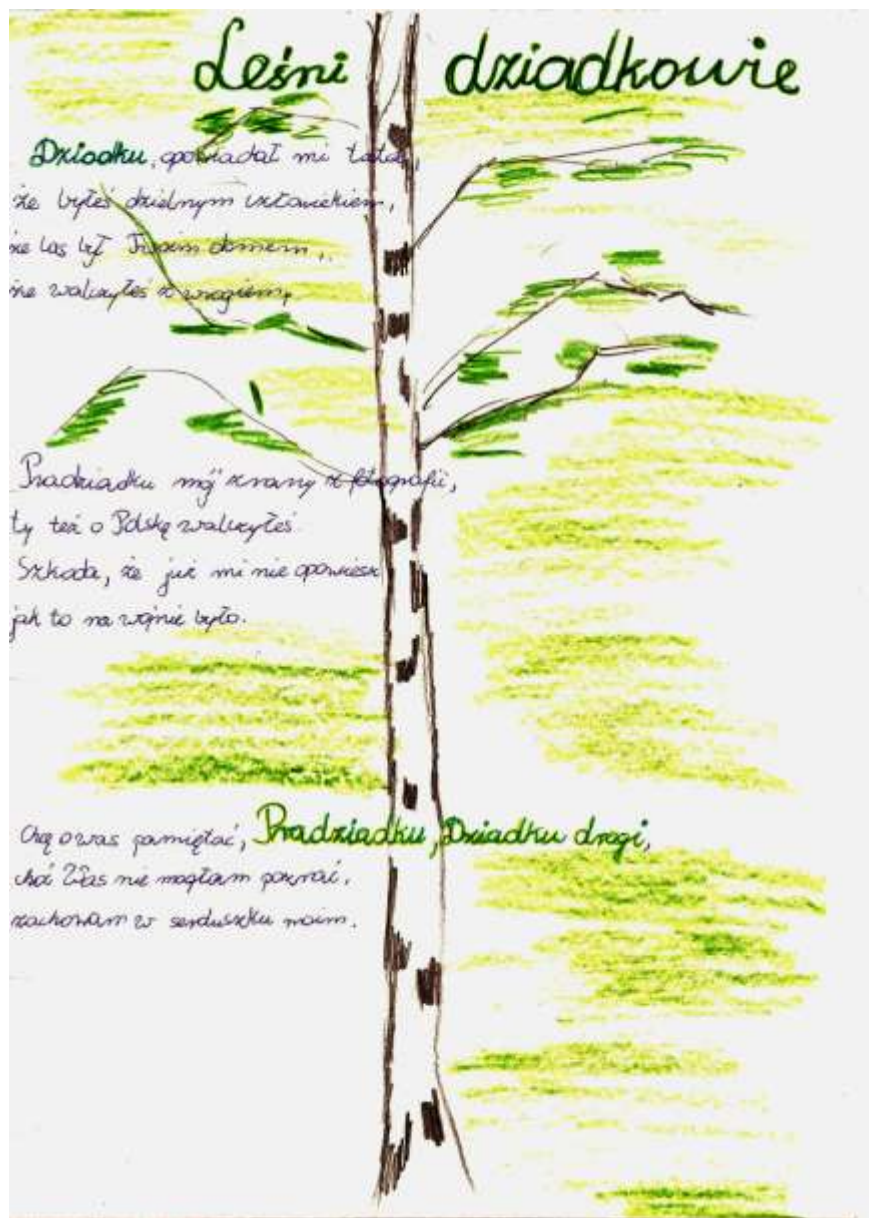 Leśni dziadkowie
Dziadku, opowiadał mi tata,
że byłeś dzielnym człowiekiem,
że las był Twoim domem,
że walczyłeś z wrogiem,
Pradziadku mój znany z fotografii,
ty też o Polskę walczyłeś.
Szkoda, że już mi nie opowiesz
jak to na wojnie było.
Chcę o was pamiętać, Pradziadku, Dziadku drogi,
choć Was nie mogłam poznać,
zachowam w serduszku moim.